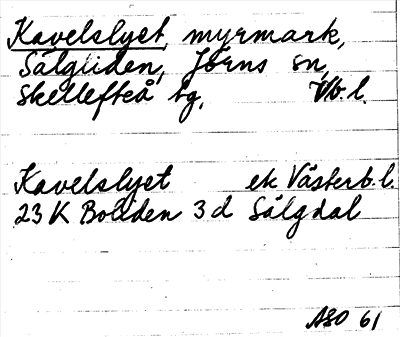 Kavelslyet, myrmark,
Sälgliden, Jörns sn,
Skellefteå tg, Vb. l.
Kavelslyet ek Västerb. l.
23 K Boliden 3 d Sälgdal
ASO 61